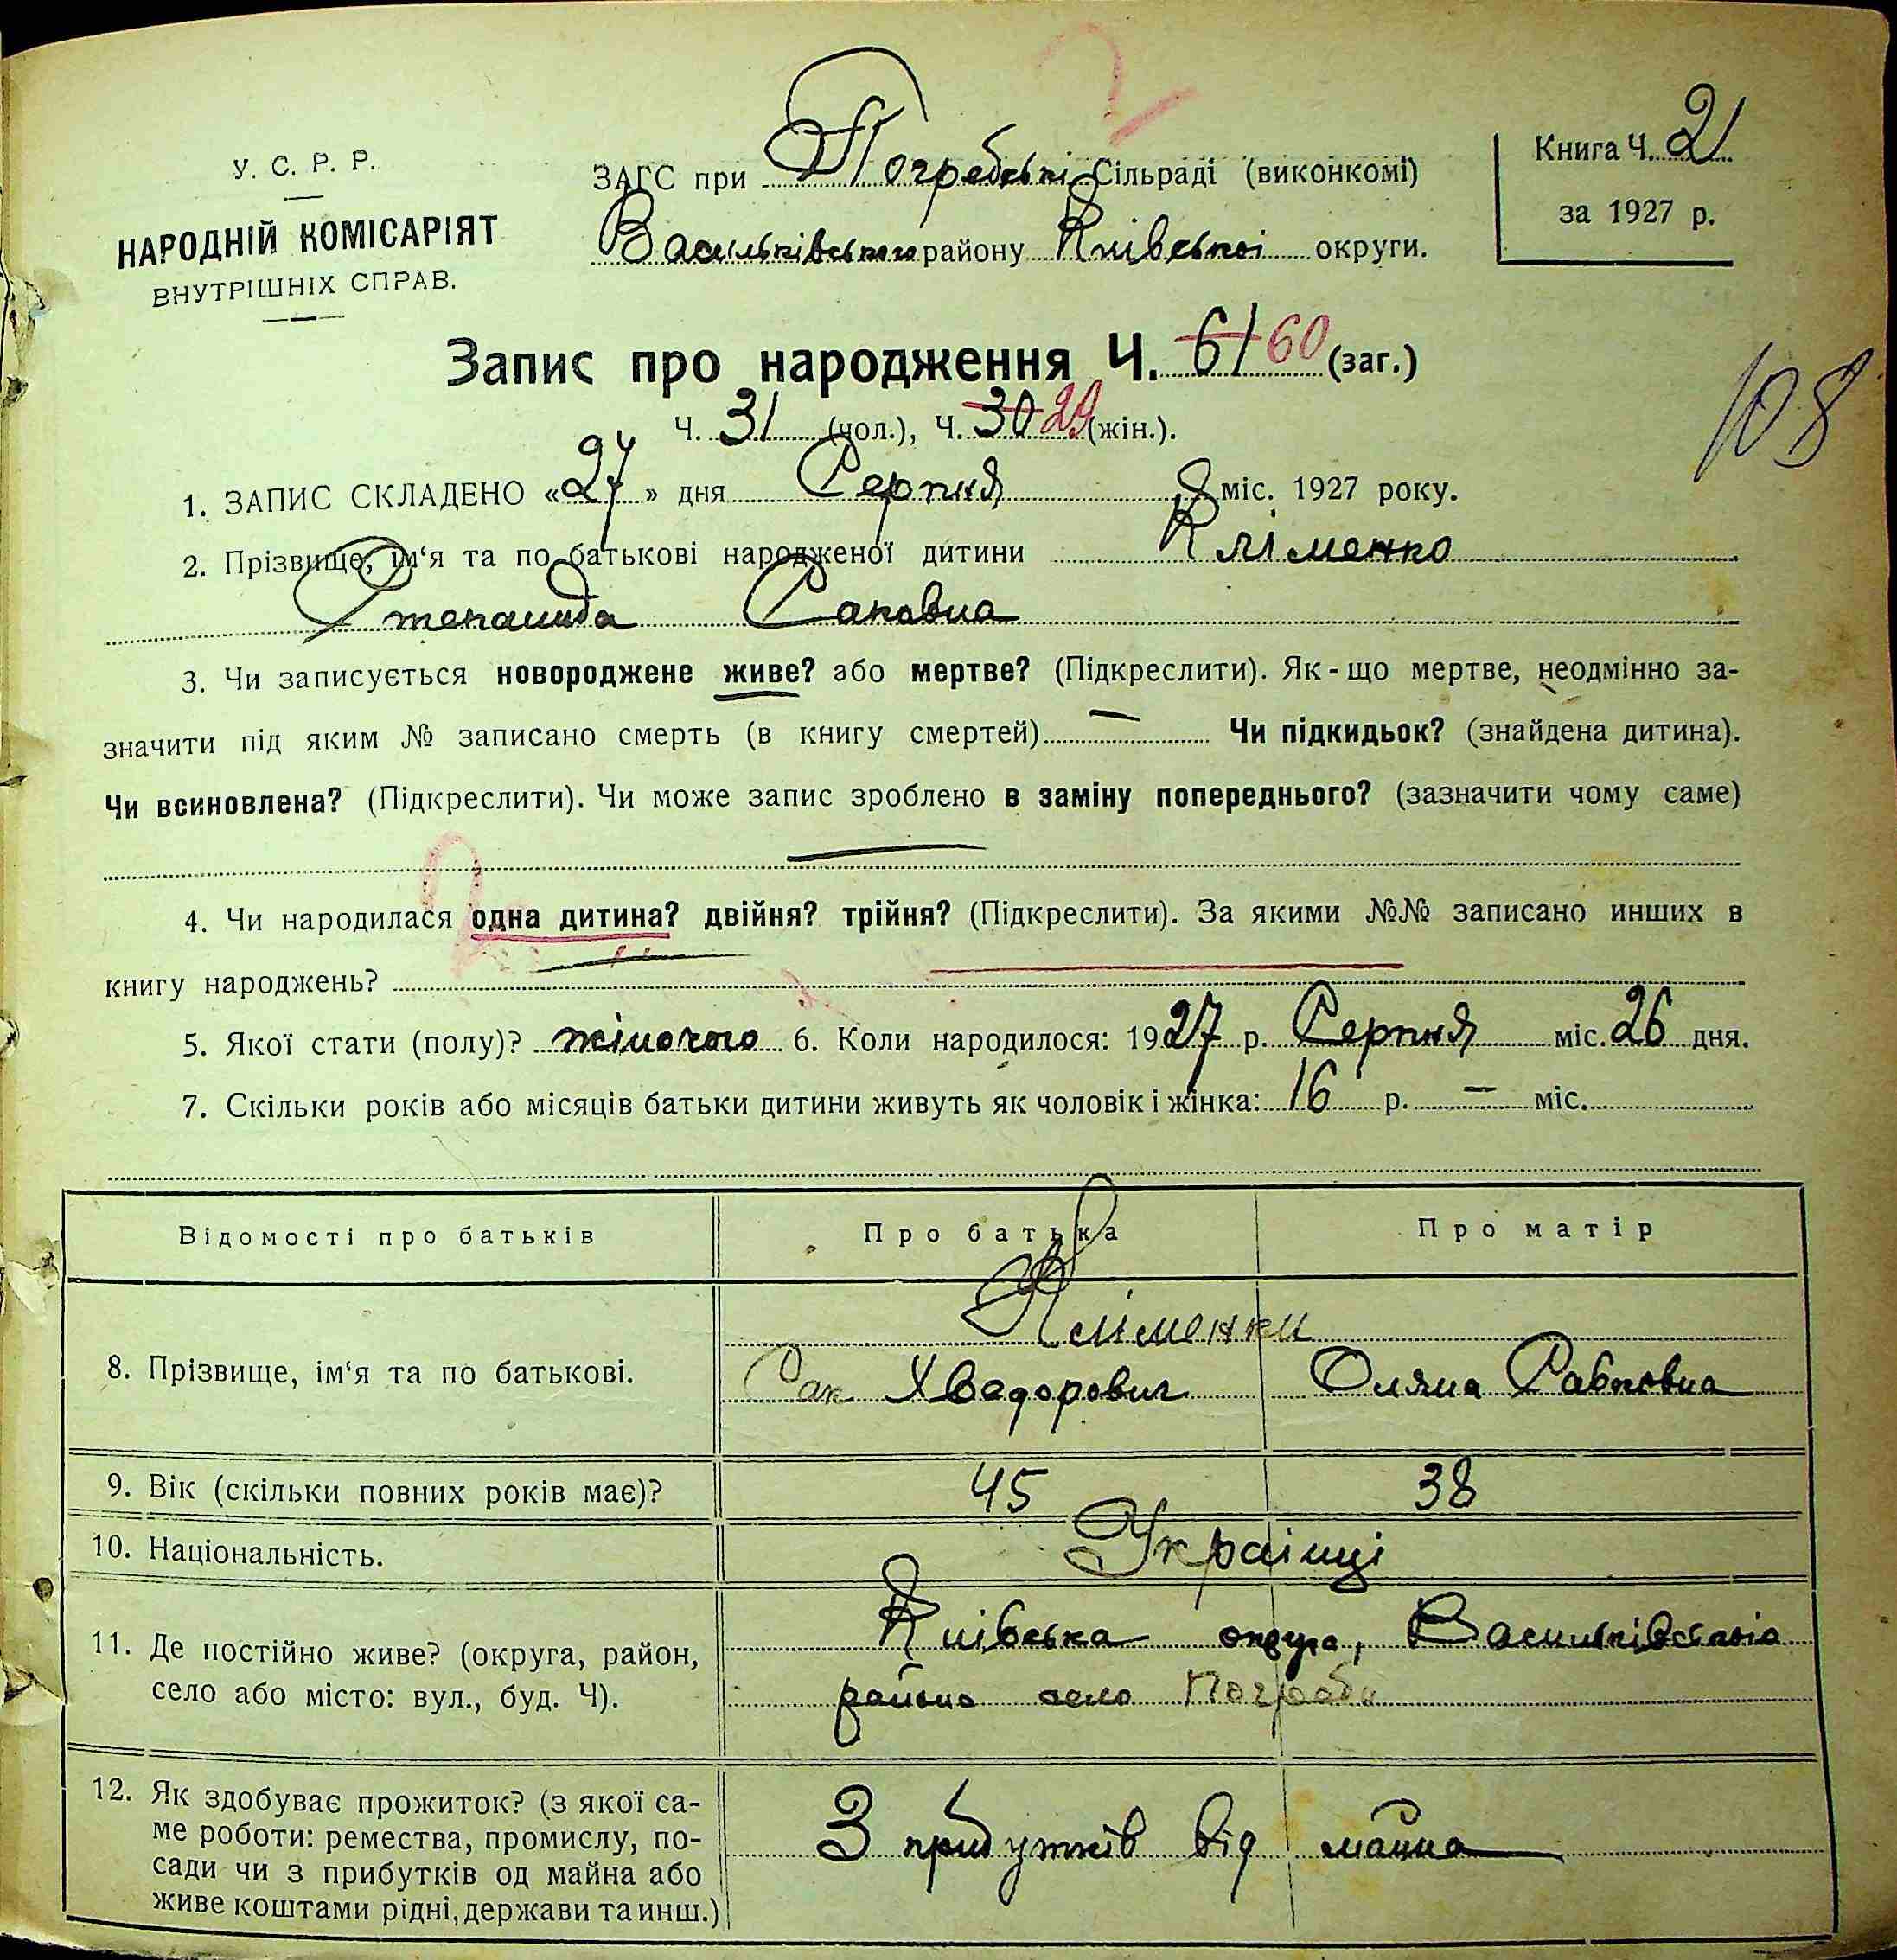 2
У. С. Р. Р.
НАРОДНІЙ КОМІСАРІЯТ
ВНУТРІШНІХ СПРАВ.
ЗАГС при Погребські Сільраді (виконкомі)
Васильківського району Київської округи.
Книга Ч. 2
за 1927 р.
Запис про народження Ч. 61 60 (заг.)
Ч. 31 (чол.), Ч. 30 29 (жін.).
108
1. ЗАПИС СКЛАДЕНО «27» дня Серпня 8 міс. 1927 року.
2. Прізвище, ім‘я та по батькові народженої дитини Кліменко
Степанида Саковна
3. Чи записується новороджене живе? або мертве? (Підкреслити). Як-що мертве, неодмінно за-
значити під яким № записано смерть (в книгу смертей) — Чи підкидьок? (знайдена дитина).
Чи всиновлена? (Підкреслити). Чи може запис зроблено в заміну попереднього? (зазначити чому саме)
—
2
4. Чи народилася одна дитина? двійня? трійня? (Підкреслити). За якими №№ записано инших в
книгу народжень?
5. Якої стати (полу)? жіночого 6. Коли народилося: 1927 р. Серпня міс. 26 дня.
7. Скільки років або місяців батьки дитини живуть як чоловік і жінка: 16 р. — міс.
Відомості про батьків Про батька Про матір
Кліменки
8. Прізвище, ім‘я та по батькові. Сак Хведорович Оляна Савковна
9. Вік (скільки повних років має)? 45 38
10. Національність. Українці
11. Де постійно живе? (округа, район,
село або місто: вул., буд. Ч).
Київська округа, Васильківського
району село Погреби
12. Як здобуває прожиток? (з якої са-
ме роботи: ремества, промислу, по-
сади чи з прибутків од майна або
живе коштами рідні, держави та инш.)
З прибутків від майна